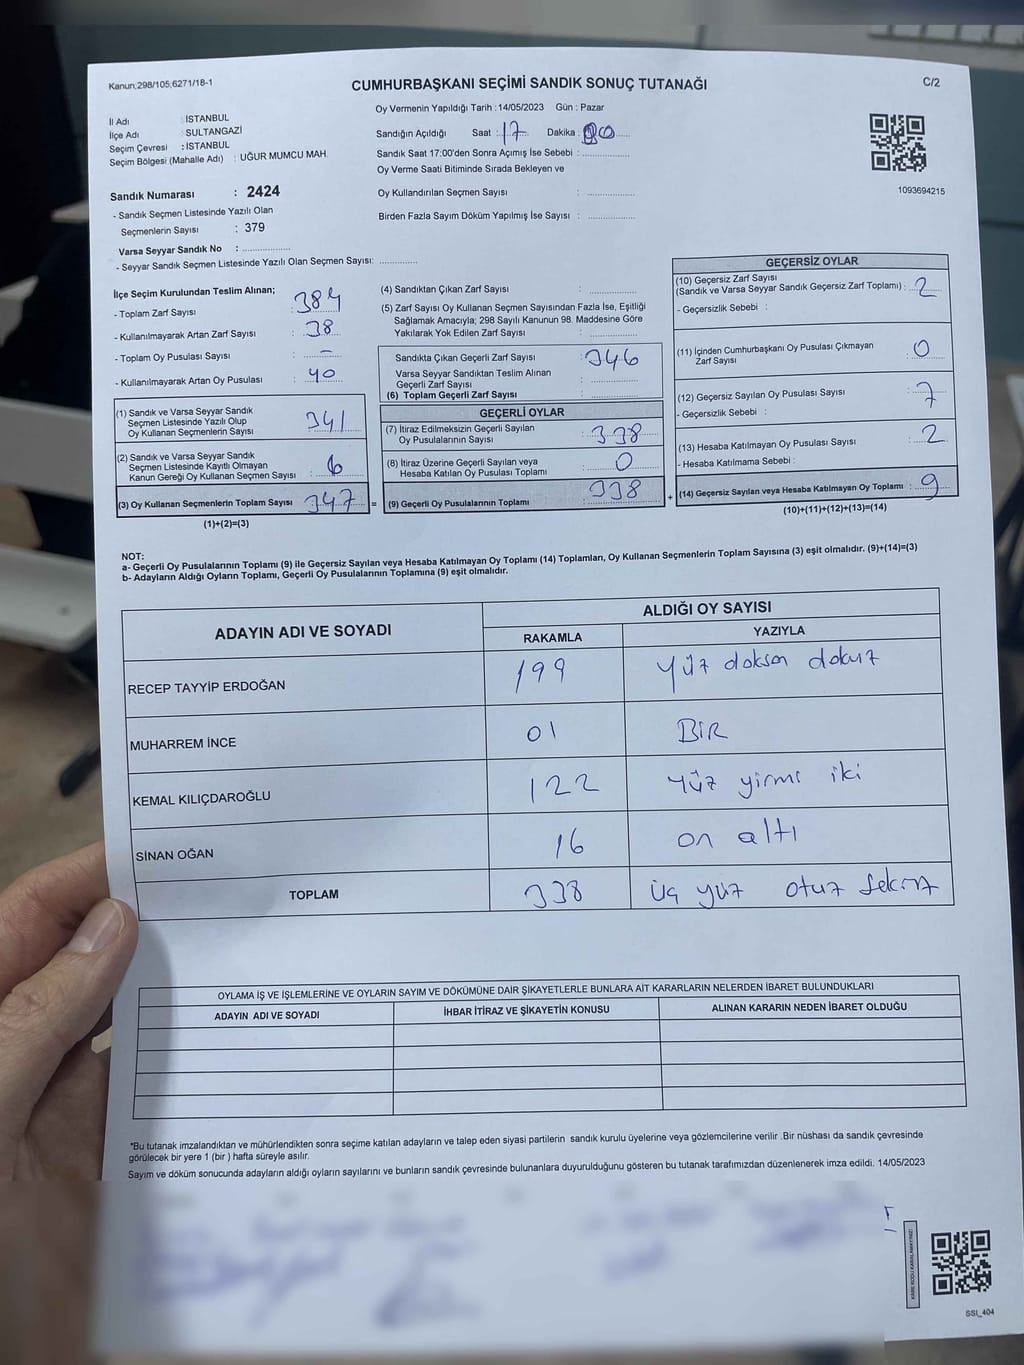 Kanun:298/105;6271/18-1
CUMHURBAŞKANI SEÇİMİ SANDIK SONUÇ TUTANAĞI
C/2
İl Adı : İSTANBUL
İlçe Adı : SULTANGAZİ
Seçim Çevresi : İSTANBUL
Seçim Bölgesi (Mahalle Adı) : UĞUR MUMCU MAH.
Sandık Numarası : 2424
- Sandık Seçmen Listesinde Yazılı Olan
Seçmenlerin Sayısı : 379
Varsa Seyyar Sandık No :
- Seyyar Sandık Seçmen Listesinde Yazılı Olan Seçmen Sayısı:
Oy Vermenin Yapıldığı Tarih : 14/05/2023 Gün : Pazar
Sandığın Açıldığı Saat : 17 Dakika :
Sandık Saat 17:00'den Sonra Açımış İse Sebebi :
Oy Verme Saati Bitiminde Sırada Bekleyen ve
Oy Kullandırılan Seçmen Sayısı :
Birden Fazla Sayım Döküm Yapılmış İse Sayısı :
1093694215
İlçe Seçim Kurulundan Teslim Alınan;
- Toplam Zarf Sayısı : 384
- Kullanılmayarak Artan Zarf Sayısı : 38
- Toplam Oy Pusulası Sayısı : -
- Kullanılmayarak Artan Oy Pusulası : 40
(1) Sandık ve Varsa Seyyar Sandık
Seçmen Listesinde Yazılı Olup
Oy Kullanan Seçmenlerin Sayısı : 341
(2) Sandık ve Varsa Seyyar Sandık
Seçmen Listesinde Kayıtlı Olmayan
Kanun Gereği Oy Kullanan Seçmen Sayısı : 6
(3) Oy Kullanan Seçmenlerin Toplam Sayısı : 347 =
(1)+(2)=(3)
(4) Sandıktan Çıkan Zarf Sayısı :
(5) Zarf Sayısı Oy Kullanan Seçmen Sayısından Fazla İse, Eşitliği
Sağlamak Amacıyla; 298 Sayılı Kanunun 98. Maddesine Göre
Yakılarak Yok Edilen Zarf Sayısı :
Sandıkta Çıkan Geçerli Zarf Sayısı : 346
Varsa Seyyar Sandıktan Teslim Alınan
Geçerli Zarf Sayısı :
(6) Toplam Geçerli Zarf Sayısı :
GEÇERLİ OYLAR
(7) İtiraz Edilmeksizin Geçerli Sayılan
Oy Pusulalarının Sayısı : 338
(8) İtiraz Üzerine Geçerli Sayılan veya
Hesaba Katılan Oy Pusulası Toplamı : 0
(9) Geçerli Oy Pusulalarının Toplamı : 338 +
GEÇERSİZ OYLAR
(10) Geçersiz Zarf Sayısı
(Sandık ve Varsa Seyyar Sandık Geçersiz Zarf Toplamı) : 2
- Geçersizlik Sebebi :
(11) İçinden Cumhurbaşkanı Oy Pusulası Çıkmayan
Zarf Sayısı : 0
(12) Geçersiz Sayılan Oy Pusulası Sayısı : 7
- Geçersizlik Sebebi :
(13) Hesaba Katılmayan Oy Pusulası Sayısı : 2
- Hesaba Katılmama Sebebi :
(14) Geçersiz Sayılan veya Hesaba Katılmayan Oy Toplamı : 9
(10)+(11)+(12)+(13)=(14)
NOT:
a- Geçerli Oy Pusulalarının Toplamı (9) ile Geçersiz Sayılan veya Hesaba Katılmayan Oy Toplamı (14) Toplamları, Oy Kullanan Seçmenlerin Toplam Sayısına (3) eşit olmalıdır. (9)+(14)=(3)
b- Adayların Aldığı Oyların Toplamı, Geçerli Oy Pusulalarının Toplamına (9) eşit olmalıdır.
ADAYIN ADI VE SOYADI
ALDIĞI OY SAYISI
RAKAMLA YAZIYLA
RECEP TAYYİP ERDOĞAN 199 Yüz doksan dokuz
MUHARREM İNCE 01 BİR
KEMAL KILIÇDAROĞLU 122 Yüz yirmi iki
SİNAN OĞAN 16 on altı
TOPLAM 338 üç yüz otuz sekiz
OYLAMA İŞ VE İŞLEMLERİNE VE OYLARIN SAYIM VE DÖKÜMÜNE DAİR ŞİKAYETLERLE BUNLARA AİT KARARLARIN NELERDEN İBARET BULUNDUKLARI
ADAYIN ADI VE SOYADI İHBAR İTİRAZ VE ŞİKAYETİN KONUSU ALINAN KARARIN NEDEN İBARET OLDUĞU
*Bu tutanak imzalandıktan ve mühürlendikten sonra seçime katılan adayların ve talep eden siyasi partilerin sandık kurulu üyelerine veya gözlemcilerine verilir .Bir nüshası da sandık çevresinde
görülecek bir yere 1 (bir ) hafta süreyle asılır.
Sayım ve döküm sonucunda adayların aldığı oyların sayılarını ve bunların sandık çevresinde bulunanlara duyurulduğunu gösteren bu tutanak tarafımızdan düzenlenerek imza edildi. 14/05/2023
SSI_404